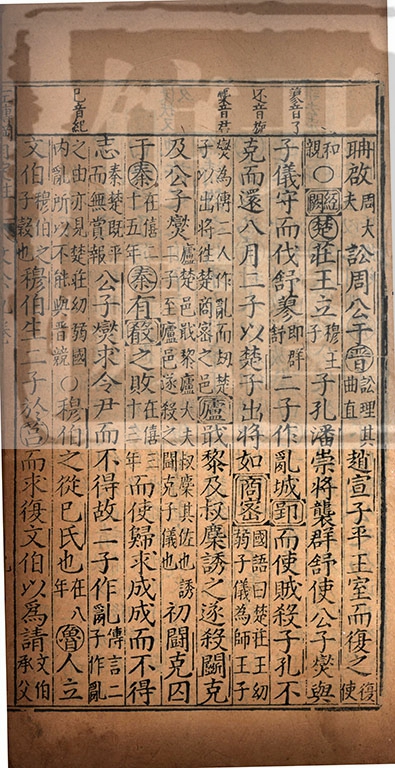 蓼音了
还音旋
麇音君
己音紀
聃啟周大夫訟周公于晉訟理其曲直趙宣子平王室而復之復使
和親○經闕楚莊王立穆王子子孔潘崇將襲群舒使公子燮與
子儀守而伐舒蓼即群舒二子作亂城郢而使賊殺子孔不
克而還八月二子以楚子出將如商密國語曰楚莊王幼弱子儀為師王子
燮為傅二人作亂而刼楚子以出將徃楚商密之邑廬戢黎及叔麇誘之遂殺鬭克
及公子燮廬楚邑戢黎廬大夫叔麇其佐也誘二子至廬邑遂殺之鬭克子儀也初鬭克囚
于秦在僖二十五年秦有殽之敗在僖三十三年而使歸求成成而不得
志秦楚既平而無賞報公子燮求令尹而不得故二子作亂傳言二子作亂
之由亦見楚莊幼弱國内亂所以不能與晉競○穆伯之從己氏也在八年魯人立
文伯穆伯之子穀也穆伯生二子於莒而求復文伯以為請文伯承父